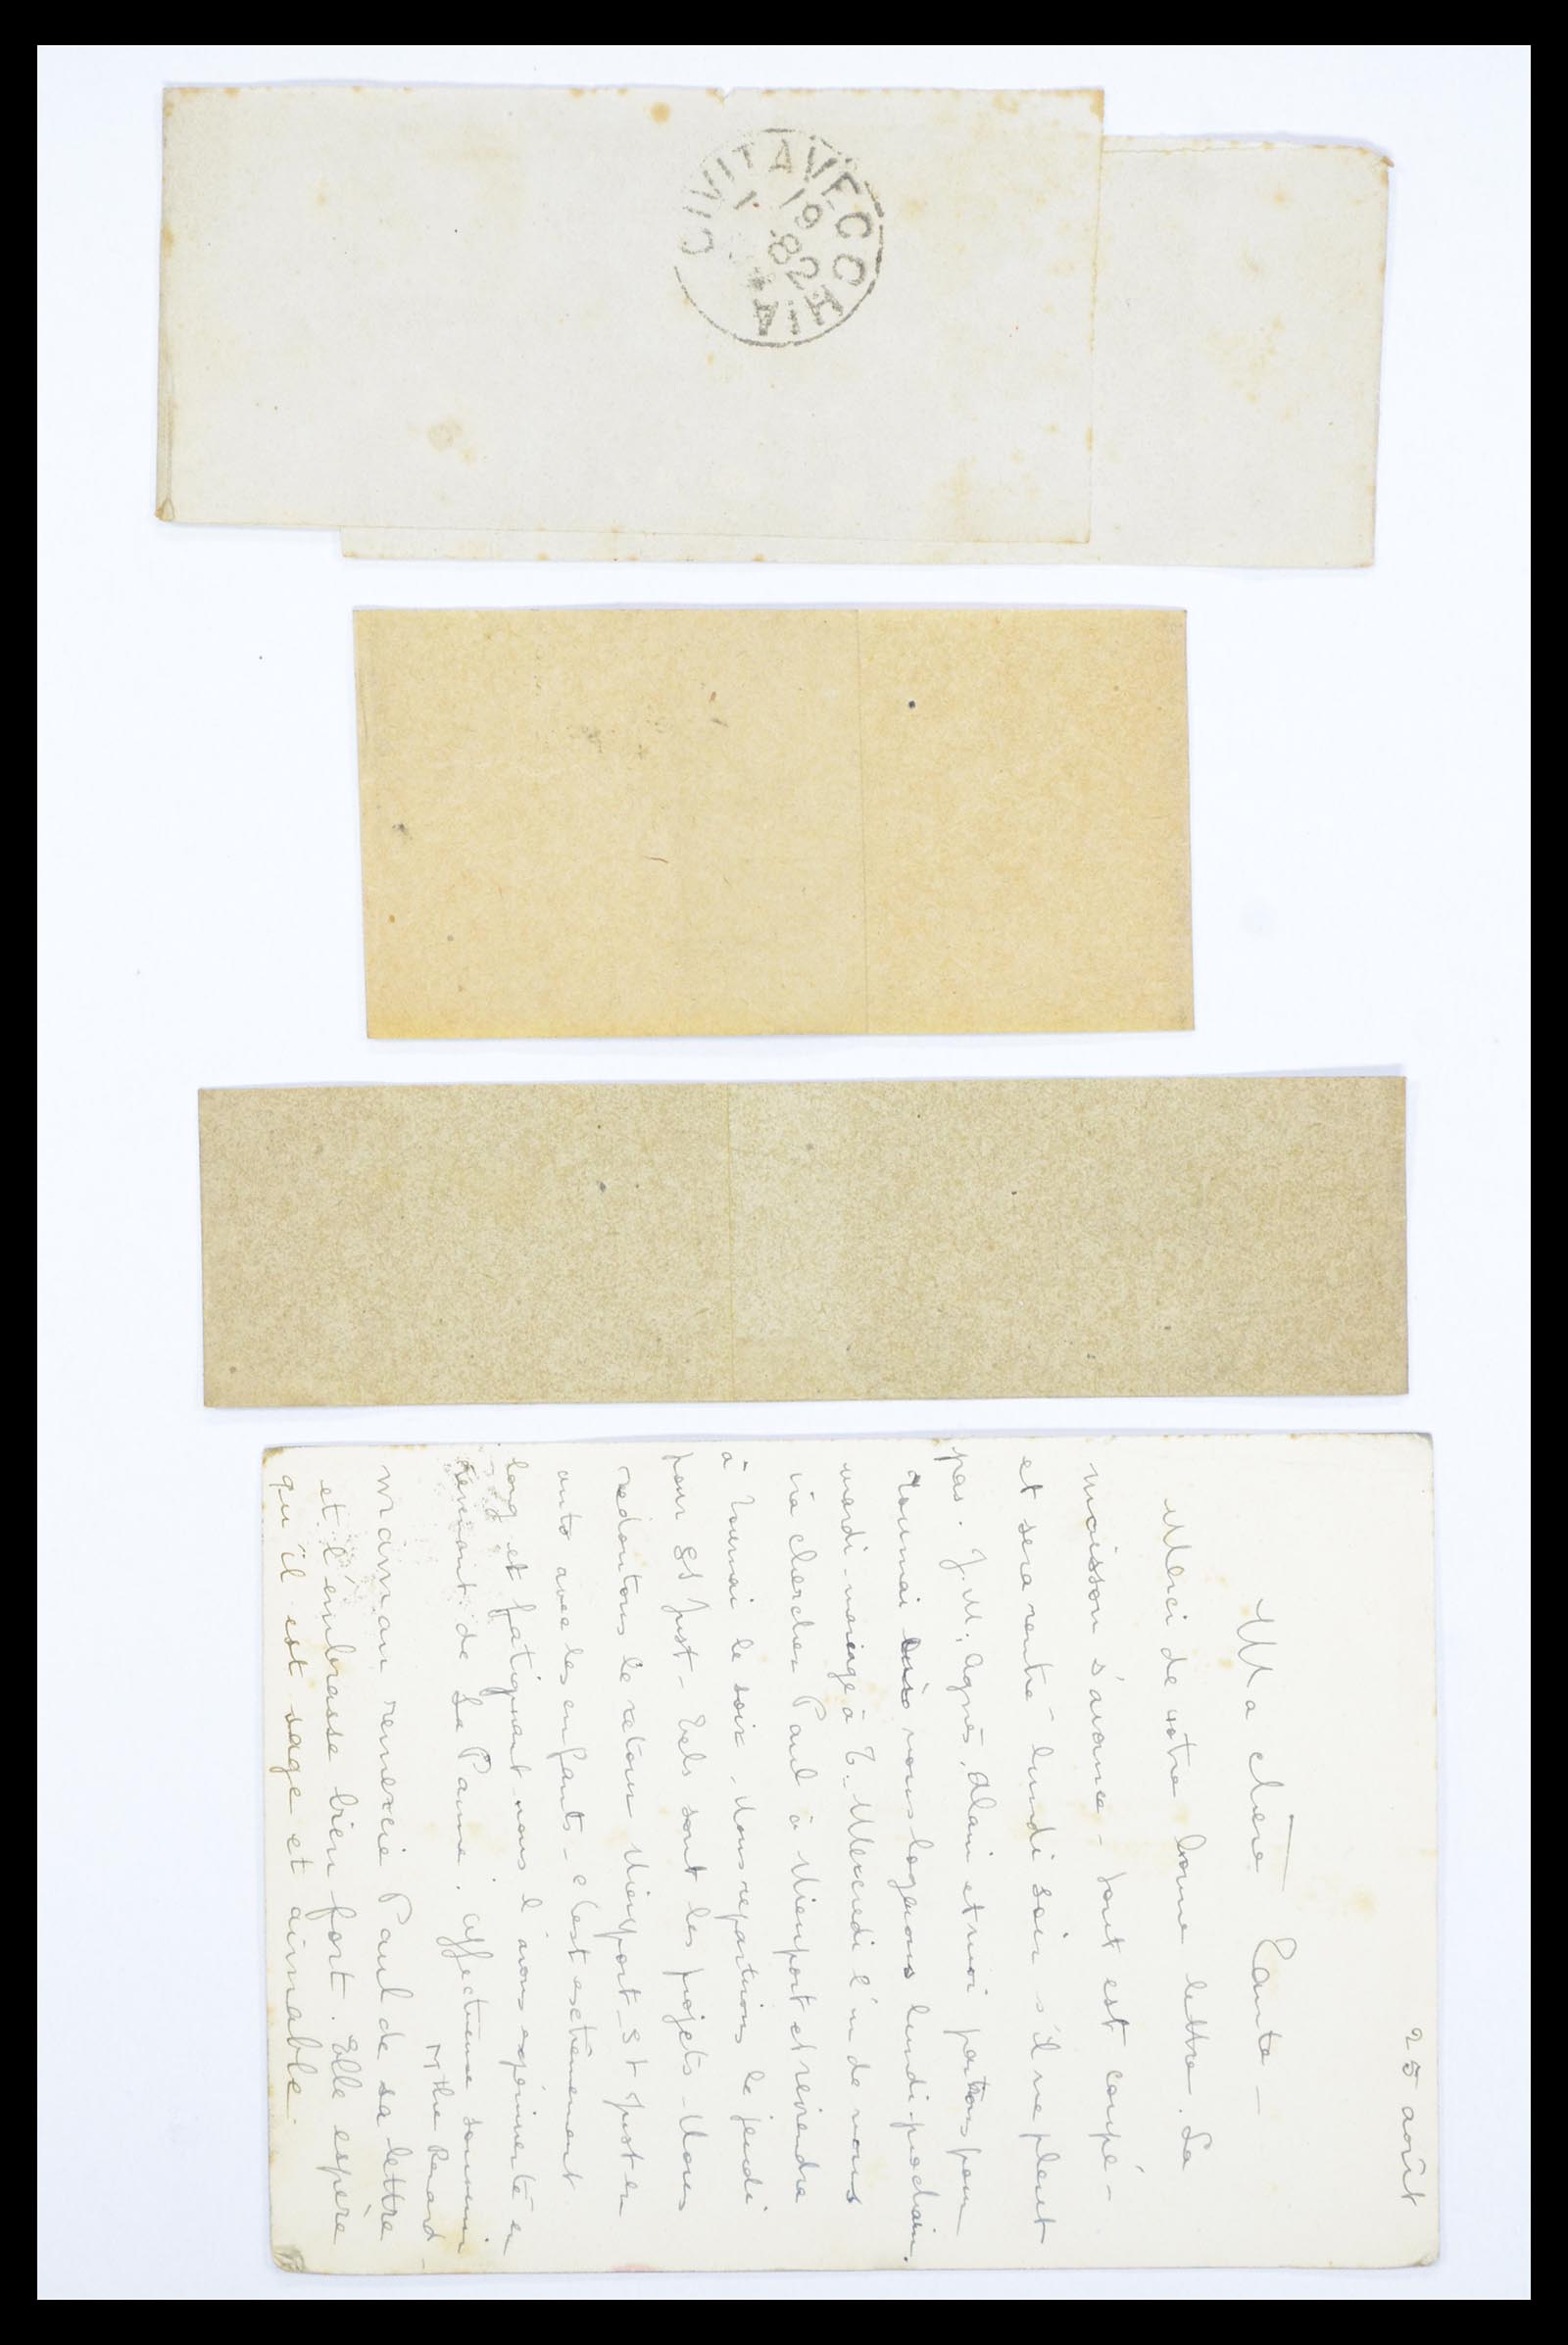 CIVITAVECCHIA
1 19
82
25 août
Ma chère Tante –
Merci de votre bonne lettre. La
moisson s'avance – tout est coupé –
et sera rentré – lundi soir s'il ne pleut
pas. J.M., Agnès, Alain et moi partons pour
Tournai nous logerons lundi prochain.
mardi – mariage à T – Mercredi l'un de nous
ira chercher Paul à Nieuport et reviendra
à Tournai le soir. Nous repartirons le jeudi
pour St Just – Tels sont les projets – Nous
redoutons le retour Nieuport – St Just en
auto avec les enfants – c'est extrêmement
long et fatigant nous l'avons expérimenté en
revenant de La Panne. affectueux souvenir
Mthe Renard –
maman remercie Paul de sa lettre
et l'embrasse bien fort. Elle espère
qu'il est sage et aimable.